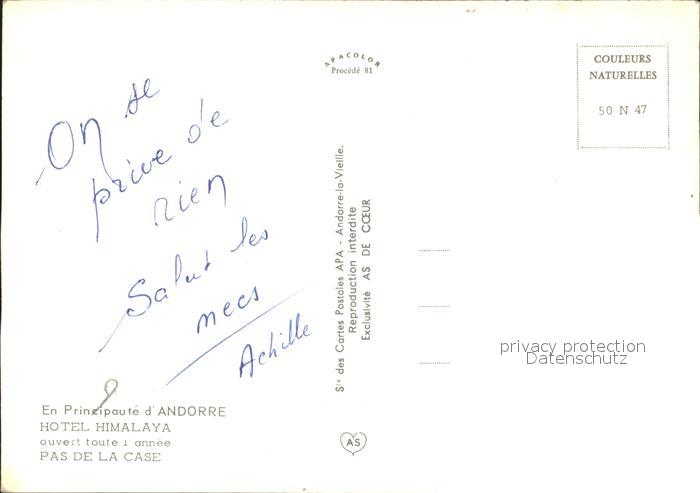 On se
prive de
rien
Salut les
mecs
Achille
En Principauté d'ANDORRE
HOTEL HIMALAYA
ouvert toute l année
PAS DE LA CASE
APACOLOR
Procédé 81
Sté des Cartes Postales APA - Andorre-la-Vieille.
Reproduction interdite
Exclusivité AS DE CŒUR
AS
COULEURS
NATURELLES
50 N 47
privacy protection
Datenschutz